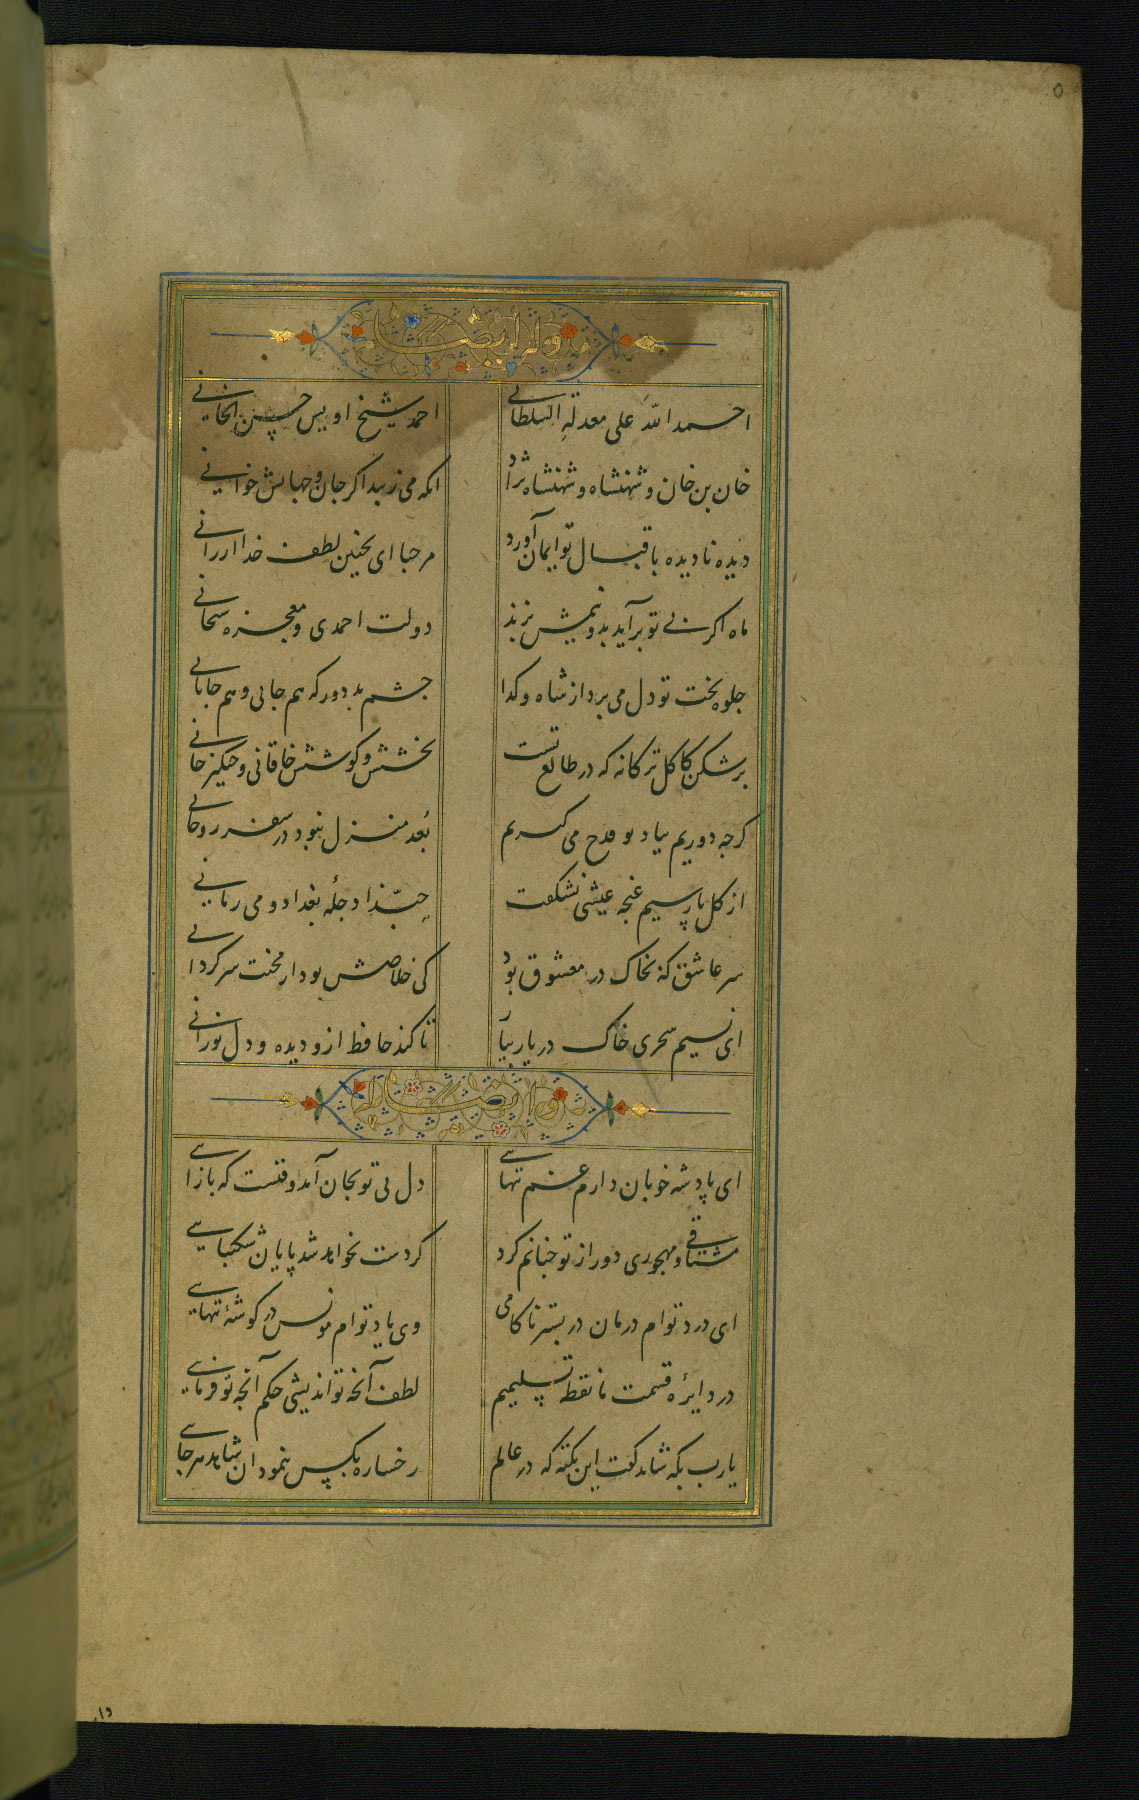 ۵
وله ایضا
احمد الله علی معدلة السلطانی
احمد شیخ اویس حسن ایلخانی
خان بن خان و شهنشاه و شهنشاه نژاد
انکه می زیبد اکر جان و جهانش خوانی
دیده نادیده باقبال تو ایمان آورد
مرحبا ای بچنین لطف خدا ارزانی
ماه اکر بی تو برآید بدو نیمش بزنند
دولت احمدی و معجزه سبحانی
جلوه بخت تو دل می برد از شاه و کدا
چشم بد دور که هم جانی و هم جانانی
برشکن کاکل ترکانه که در طالع تست
بخشش و کوشش خاقانی و چنکیزخانی
کرچه دوریم بیاد تو قدح می کیریم
بعد منزل نبود در سفر روحانی
از کل پارسیم غنچه عیشی نشکفت
حبّذا دجلهٔ بغداد و می ریحانی
سر عاشق که نه خاک در معشوق بود
کی خلاصش بود از محنت سرکردانی
ای نسیم سحری خاک در یار بیار
تا کند حافظ ازو دیده و دل نورانی
ای پادشه خوبان داد از غم تنهایی
دل بی تو بجان آمد وقتست که بازآیی
مشتاقی و مهجوری دور از تو چنانم کرد
کز دست نخواهد شد پایان شکیبایی
ای درد توام درمان در بستر ناکامی
وی یاد توام مونس در کوشهٔ تنهایی
در دایره قسمت ما نقطه تسلیمیم
لطف آنچه تو اندیشی حکم آنچه تو فرمایی
یارب بکه شاید کفت این نکته که در عالم
رخساره بکس ننمود ان شاهد هرجایی